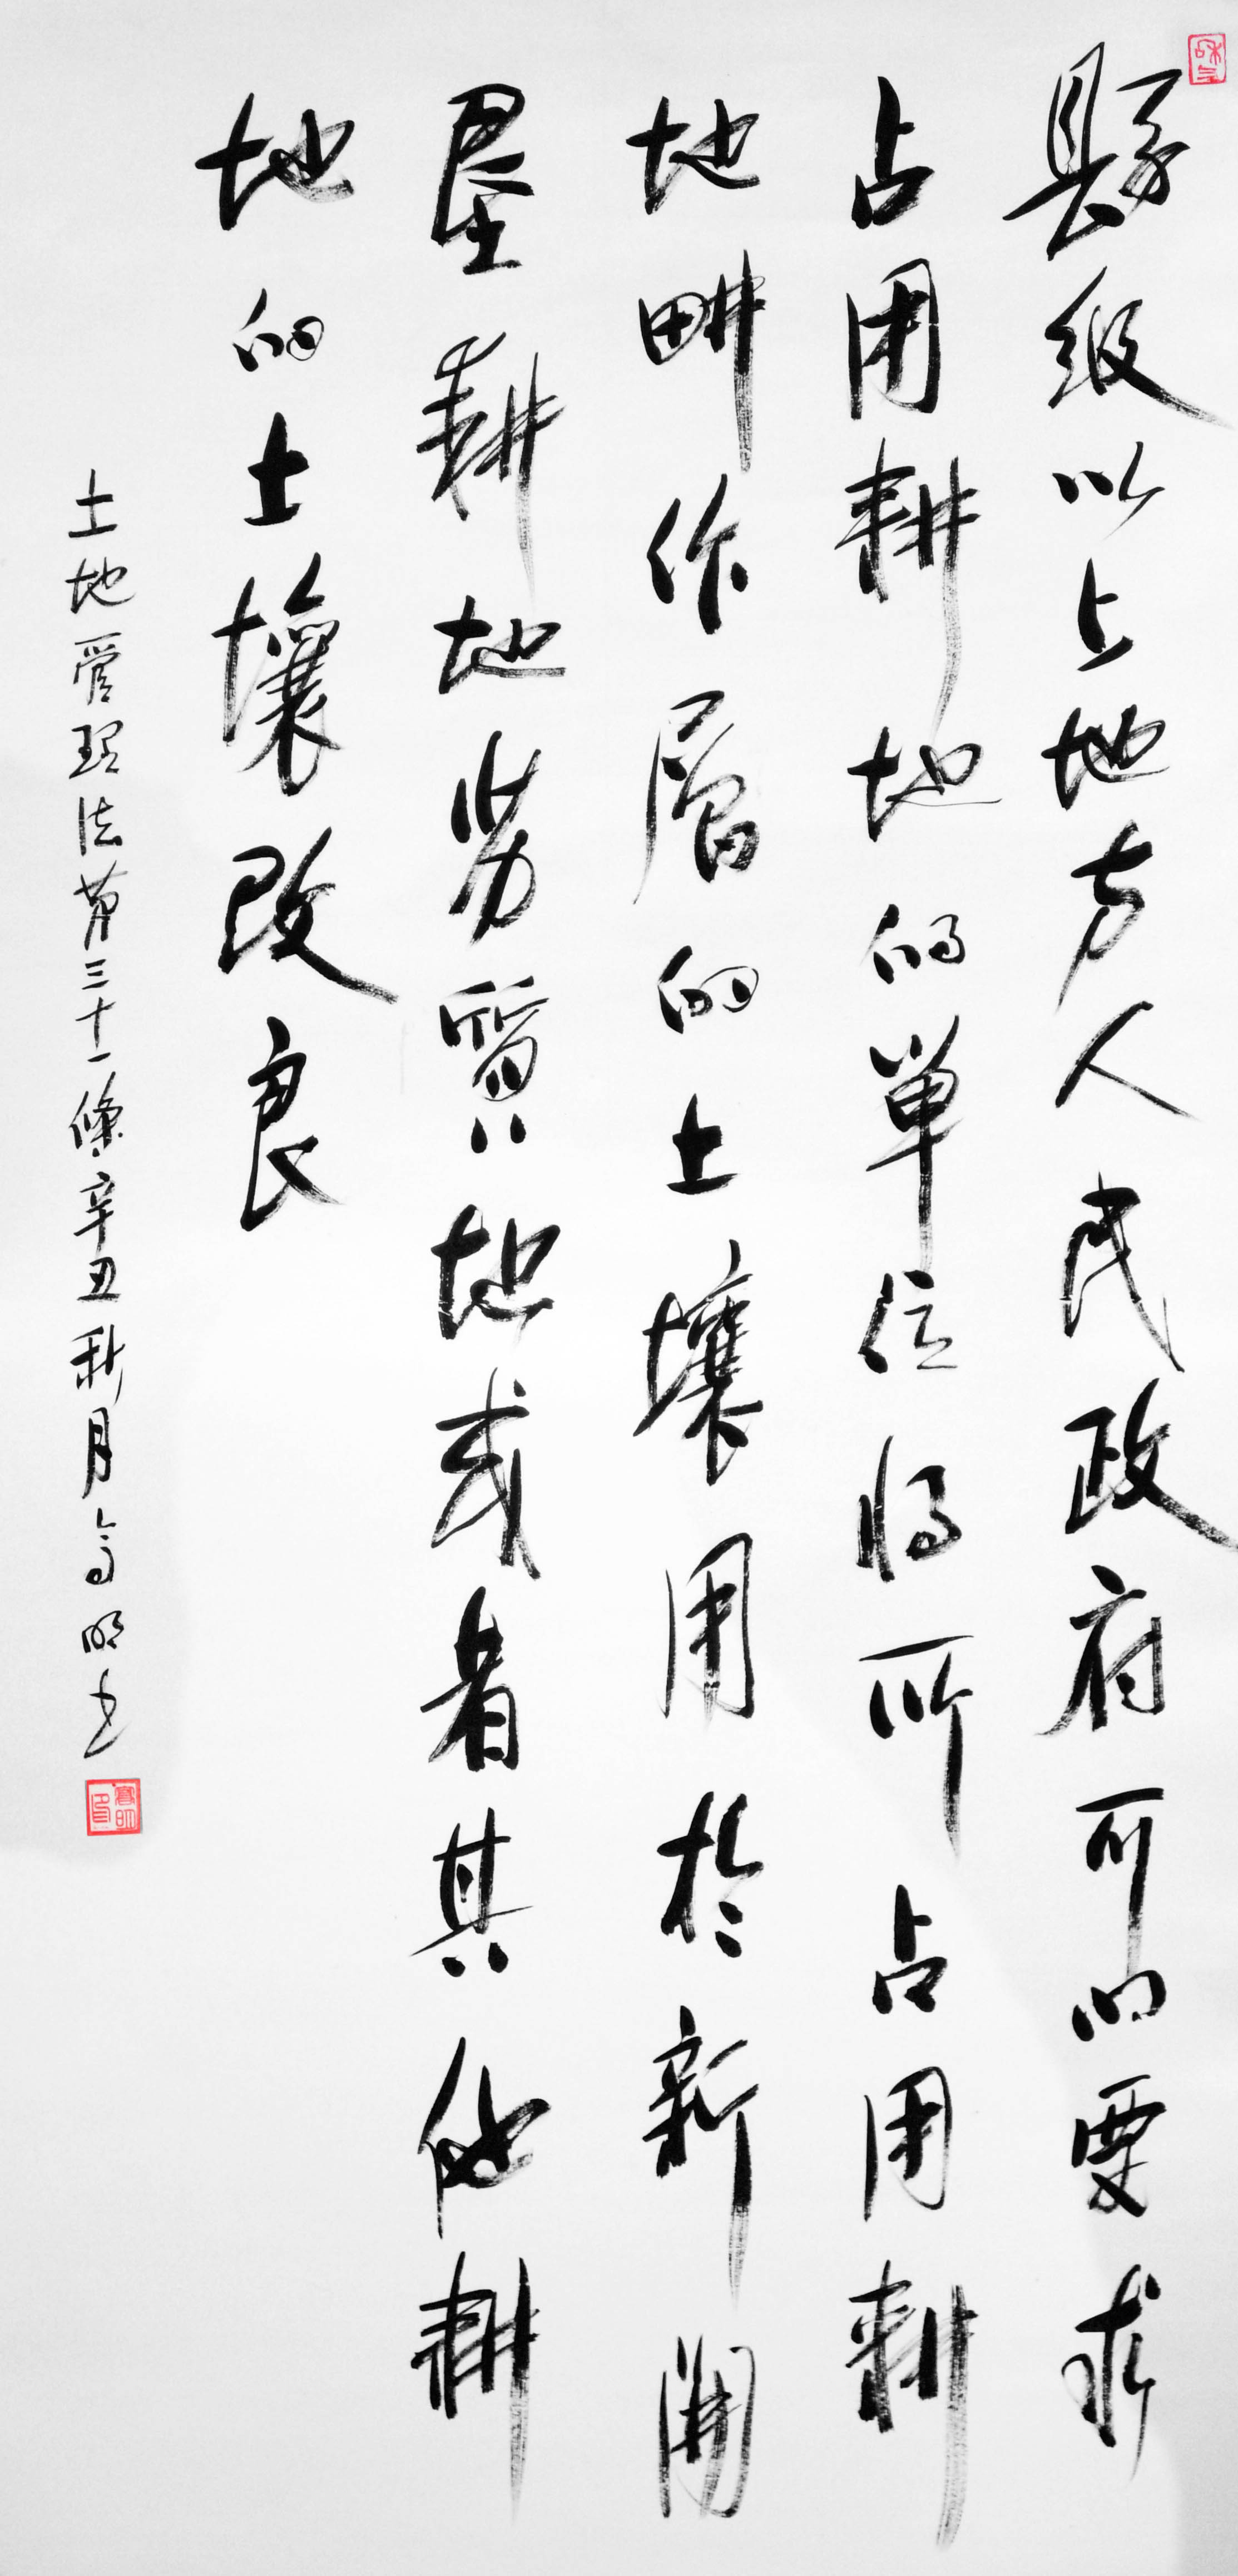 縣級以上地方人民政府可以要求
占用耕地的單位將所占用耕
地畊作層的土壤用於新開
墾耕地劣質地或者其他耕
地的土壤改良
土地管理法第三十一條辛丑秋月高明書
高明印